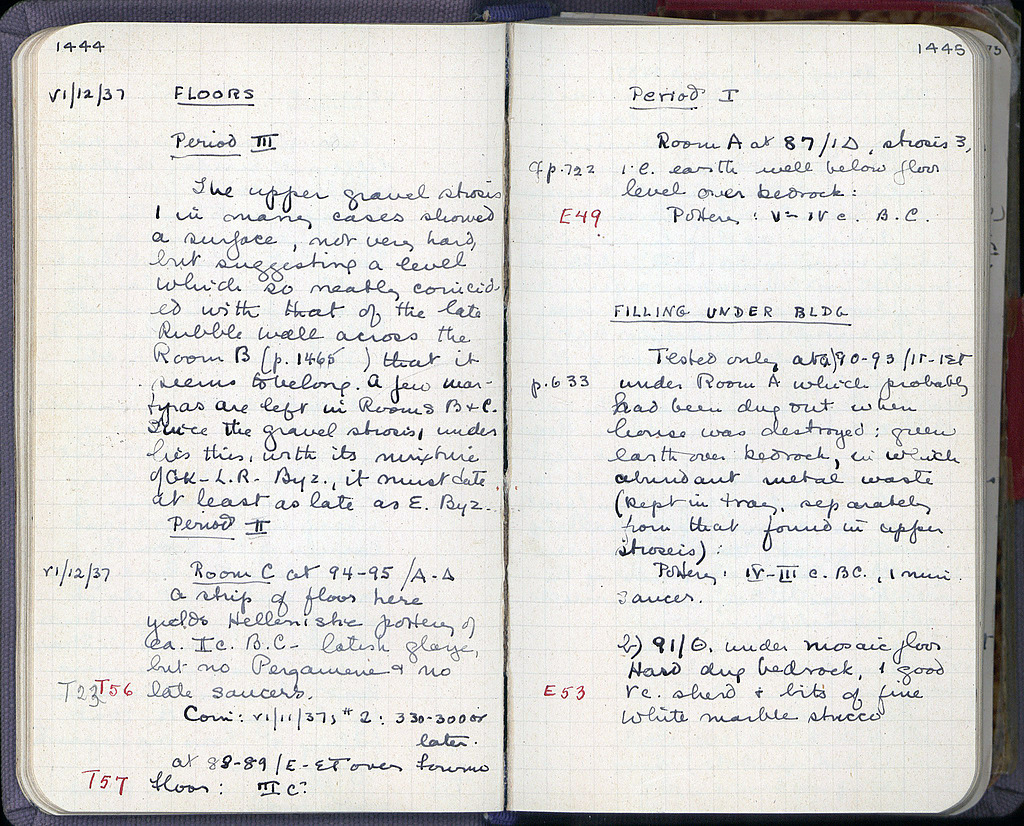 1444
VI/12/37 FLOORS
Period III
The upper gravel strosis
1 in many cases showed
a surface, not very hard,
but suggesting a level
which so neatly coincid-
ed with that of the late
Rubble wall across the
Room B (p. 1465 ) that it
seems to belong. A few mar-
tyras are left in Rooms B+C.
Since the gravel strosis, under
lies this, with its mixture
of GK-L.R.-Byz., it must date
at least as late as E. Byz.
Period II
VI/12/37 Room C at 94-95/Α-Δ
A strip of floor here
yields Hellenistic pottery of
ca. I c. B.C. - latish glaze,
but no Pergamene + no
T23 T56 late saucers.
Coin: VI/11/37, #2: 330-300 or
later.
at 88-89/Ε-ΣΤ over
T57 floor: III c?
1445
75
Period I
Room A at 87/ΙΔ, strosis 3,
cf p.722 i.e. earth well below floor
level over bedrock:
E49 Pottery: V-IV c. B.C.
FILLING UNDER BLDG
Tested only at a) 90-93/
p.633 under Room A which probably
had been dug out when
house was destroyed: green
earth over bedrock, in which
abundant metal waste
(kept in tray, separately
from that found in upper
stroseis):
Pottery: IV-III c. BC., 1 min.
saucer.
b) 91/Θ. under mosaic floor
Hard dug bedrock, 1 good
E53 V c. sherd + bits of fine
white marble stucco